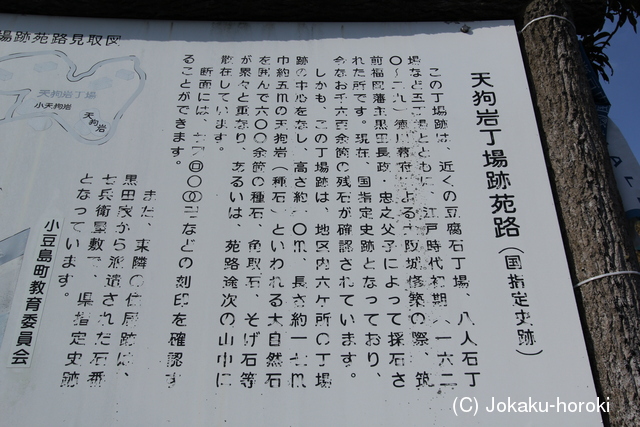 天狗岩丁場跡苑路(国指定史跡)
この丁場跡は、近くの豆腐石丁場、八人石丁
場など五丁場とともに、江戸時代初期(一六二
〇〜二九)徳川幕府による大阪城修築の際、筑
前福岡藩主黒田長政・忠之父子によって採石さ
れた所です。現在、国指定史跡となっており、
今なお千六百余箇の残石が確認されています。
しかも、この丁場跡は、地区内六ヶ所の丁場
跡の中心をなし、高さ約一〇m、長さ約一七m
巾約五mの天狗岩(種石)といわれる大自然石
を囲んで六〇〇余箇の種石、角取石、そげ石等
が累々と重なり、あるいは、苑路途次の山中に
散在しています。
断面には、
〇〇
などの刻印を確認す
ることができます。
また、東隣の住居跡は、
黒田家から派遣された石番
七兵衛屋敷で、県指定史跡
となっています。
小豆島町教育委員会
場跡苑路見取図
天狗岩丁場
小天狗岩
天狗岩
(C) Jokaku-horoki